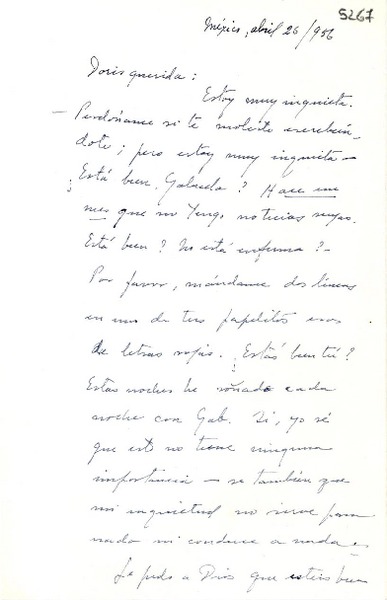 5267
México, abril 26/956
Doris querida:
Estoy muy inquieta.
— Perdóname si te molesto escribién-
dote; pero estoy muy inquieta —
¿Está bien, Gabriela? Hace un
mes que no tengo noticias suyas.
Está bien? No está enferma? —
Por favor, mándame dos líneas
en uno de tus papelitos esos
de letras rojas. ¿Estás bien tú?
Estas noches he soñado cada
noche con Gab. Sí, yo sé
que esto no tiene ninguna
importancia — se también que
mi inquietud no sirve para
nada ni conduce a nada —
Le pido a Dios que estéis bien